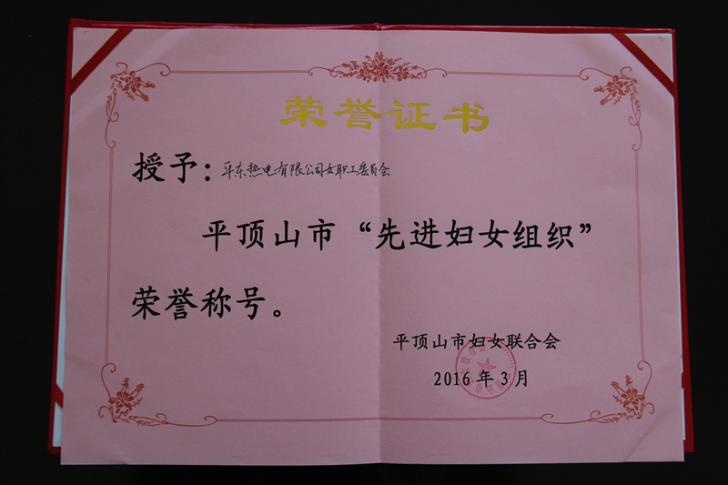 荣誉证书
授予：平东热电有限公司女职工委员会
平顶山市“先进妇女组织”
荣誉称号。
平顶山市妇女联合会
2016年3月